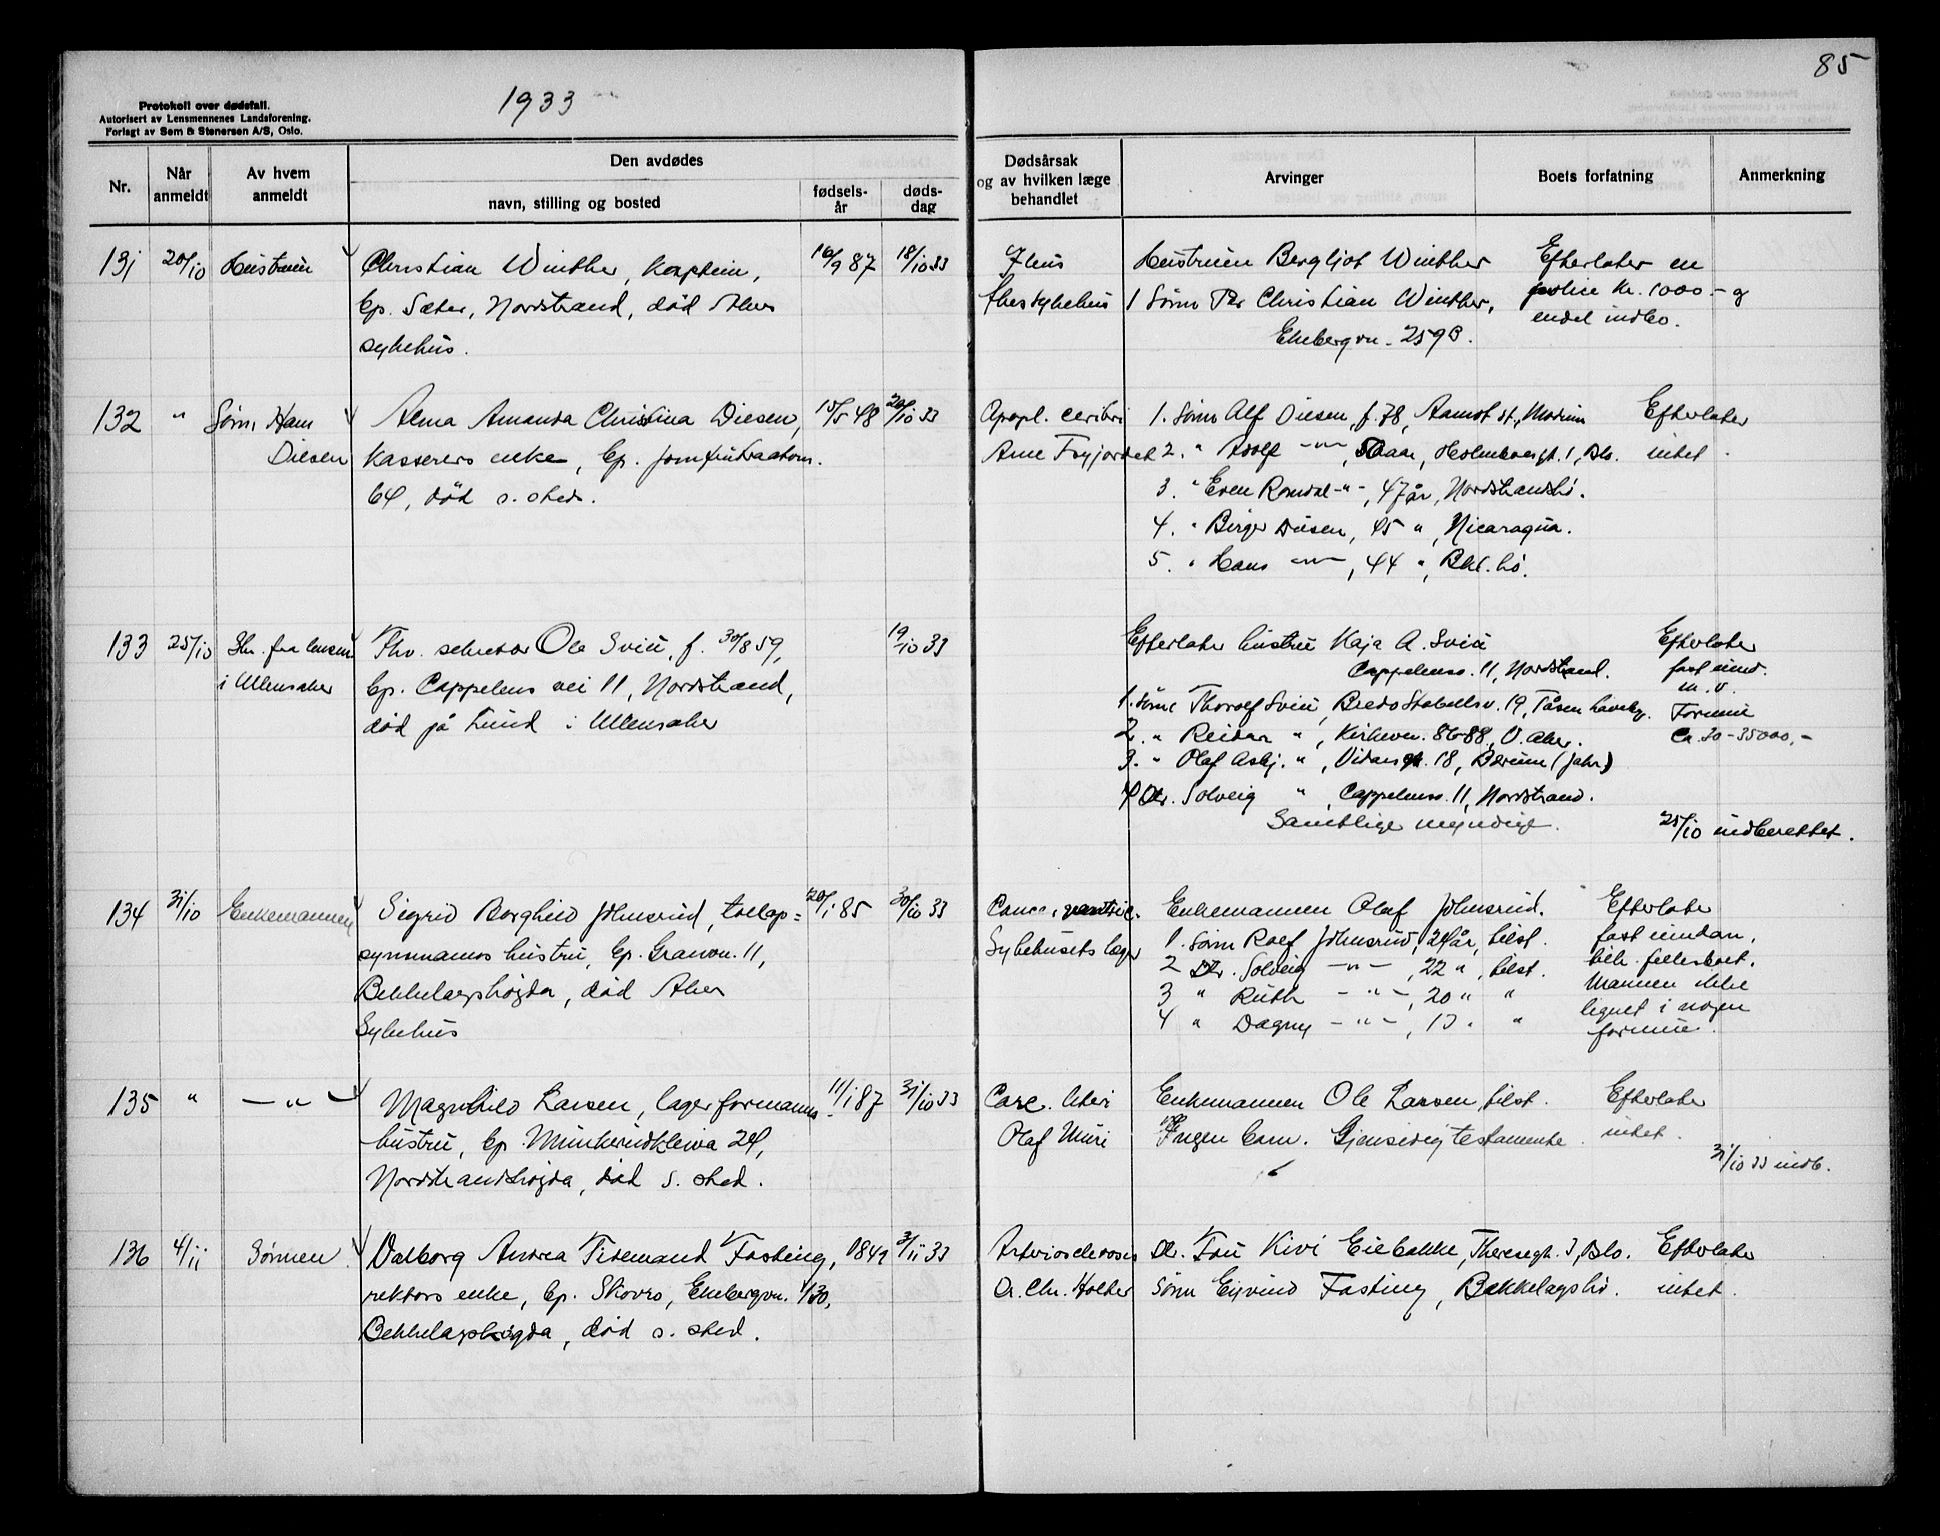 85
1933
Protokoll over dødsfall.
Autorisert av Lensmennenes Landsforening.
Forlagt av Sem & Stenersen A/S, Oslo.
Nr.
Når anmeldt
Av hvem anmeldt
Den avdødes
navn, stilling og bosted
fødsels-år
døds-dag
Dødsårsak
og av hvilken læge
behandlet
Arvinger
Boets forfatning
Anmerkning
131 20/10 Hustruen Christian Winther, kaptein, 16/9 87 18/10 33
bp. Sæter, Nordstrand, død Akers
sykehus.
Ileus Hustruen Bergljot Winther Efterlater en
Akes sykehus 1 Sønn Per Christian Winther, police kr. 1000.- og
Ekebergvn. 259B. endel indbo.
132 " Sønn Hans Alma Amanda Christina Diesen, 15/5 48 20/10 33
Diesen kasserers enke, bp. Jomfrubraatvn.
64, død s. sted.
Apopl. cerebri 1. Sønn Alf Diesen, f. 78, Aamot st., Modum Efterlater
Arne 2. " Adolf -"-, Holmboesgt. 1, Oslo. intet.
3. " Even Romdal -"-, 47 år, Nordstrandshø.
4. " Birger Diesen, 45 ", Nicaragua.
5. " Hans -"-, 44 ", Bkl. hø.
133 25/10 Skr. fra lensm. Fhv. sekretær Ole Sviu, f. 30/8 59, 19/10 33
i Ullensaker bp. Cappelens vei 11, Nordstrand,
død på Lund i Ullensaker
Efterlater hustru Kaja A. Sviu Efterlater
Cappelensv. 11, Nordstrand. fast eiend.
m. v.
1. Sønn Thorolf Sviu, Bredo Stabellsv. 19, Tåsen haveby. Formue
2. " Reidar ", Kirkevn. 86-88, V. Aker. Ca. 30-35000,-
3. " Olaf Asbj. ", Vidarsgt. 18, Bærum (Jahr)
4 Dtr. Solveig " Cappelensv. 11, Nordstrand.
Samtlige myndige. 25/10 indberettet.
134 31/10 Enkemannen Sigrid Borghild Johnsrud, tollop= 20/1 85 30/10 33
synsmanns hustru, bp. Granvn. 11,
Bekkelagshøgda, død Aker
Sykehus
Canc. Enkemannen Olaf Johnsrud. Efterlater
Sykehusets læger 1. Sønn Rolf Johnsrud, 24 år, tilst. fast eiendom,
2 Dtr. Solveig -"-, 22 ", tilst. tilh. fellesboet.
3 " Ruth -"-, 20 " " Mannen ikke
4 " Dagny -"-, 13 " " lignet i nogen
formue.
135 " -"- Magnhild Larsen, lagerformanns 11/1 87 31/10 33
hustru, bp. Munkerudkleiva 24,
Nordstrandshøgda, død s. sted.
Carc. uteri Enkemannen Ole Larsen, tilst. Efterlater
Olaf Muri Ingen barn. Gjensidig testamente intet.
31/10 33 indb.
136 4/11 Sønnen Valborg Andrea Tidemand Fasting, 1849 3/11 33
rektors enke, bp. Skovro, Ekebergvn. 130,
Bekkelagshøgda, død s. sted.
Arteriosclerosis Dtr. Fru Kivi Eiebakke, Theresegt. 3, Oslo. Efterlater
D. Chr. Holter Sønn Eyvind Fasting, Bekkelagshø. intet.